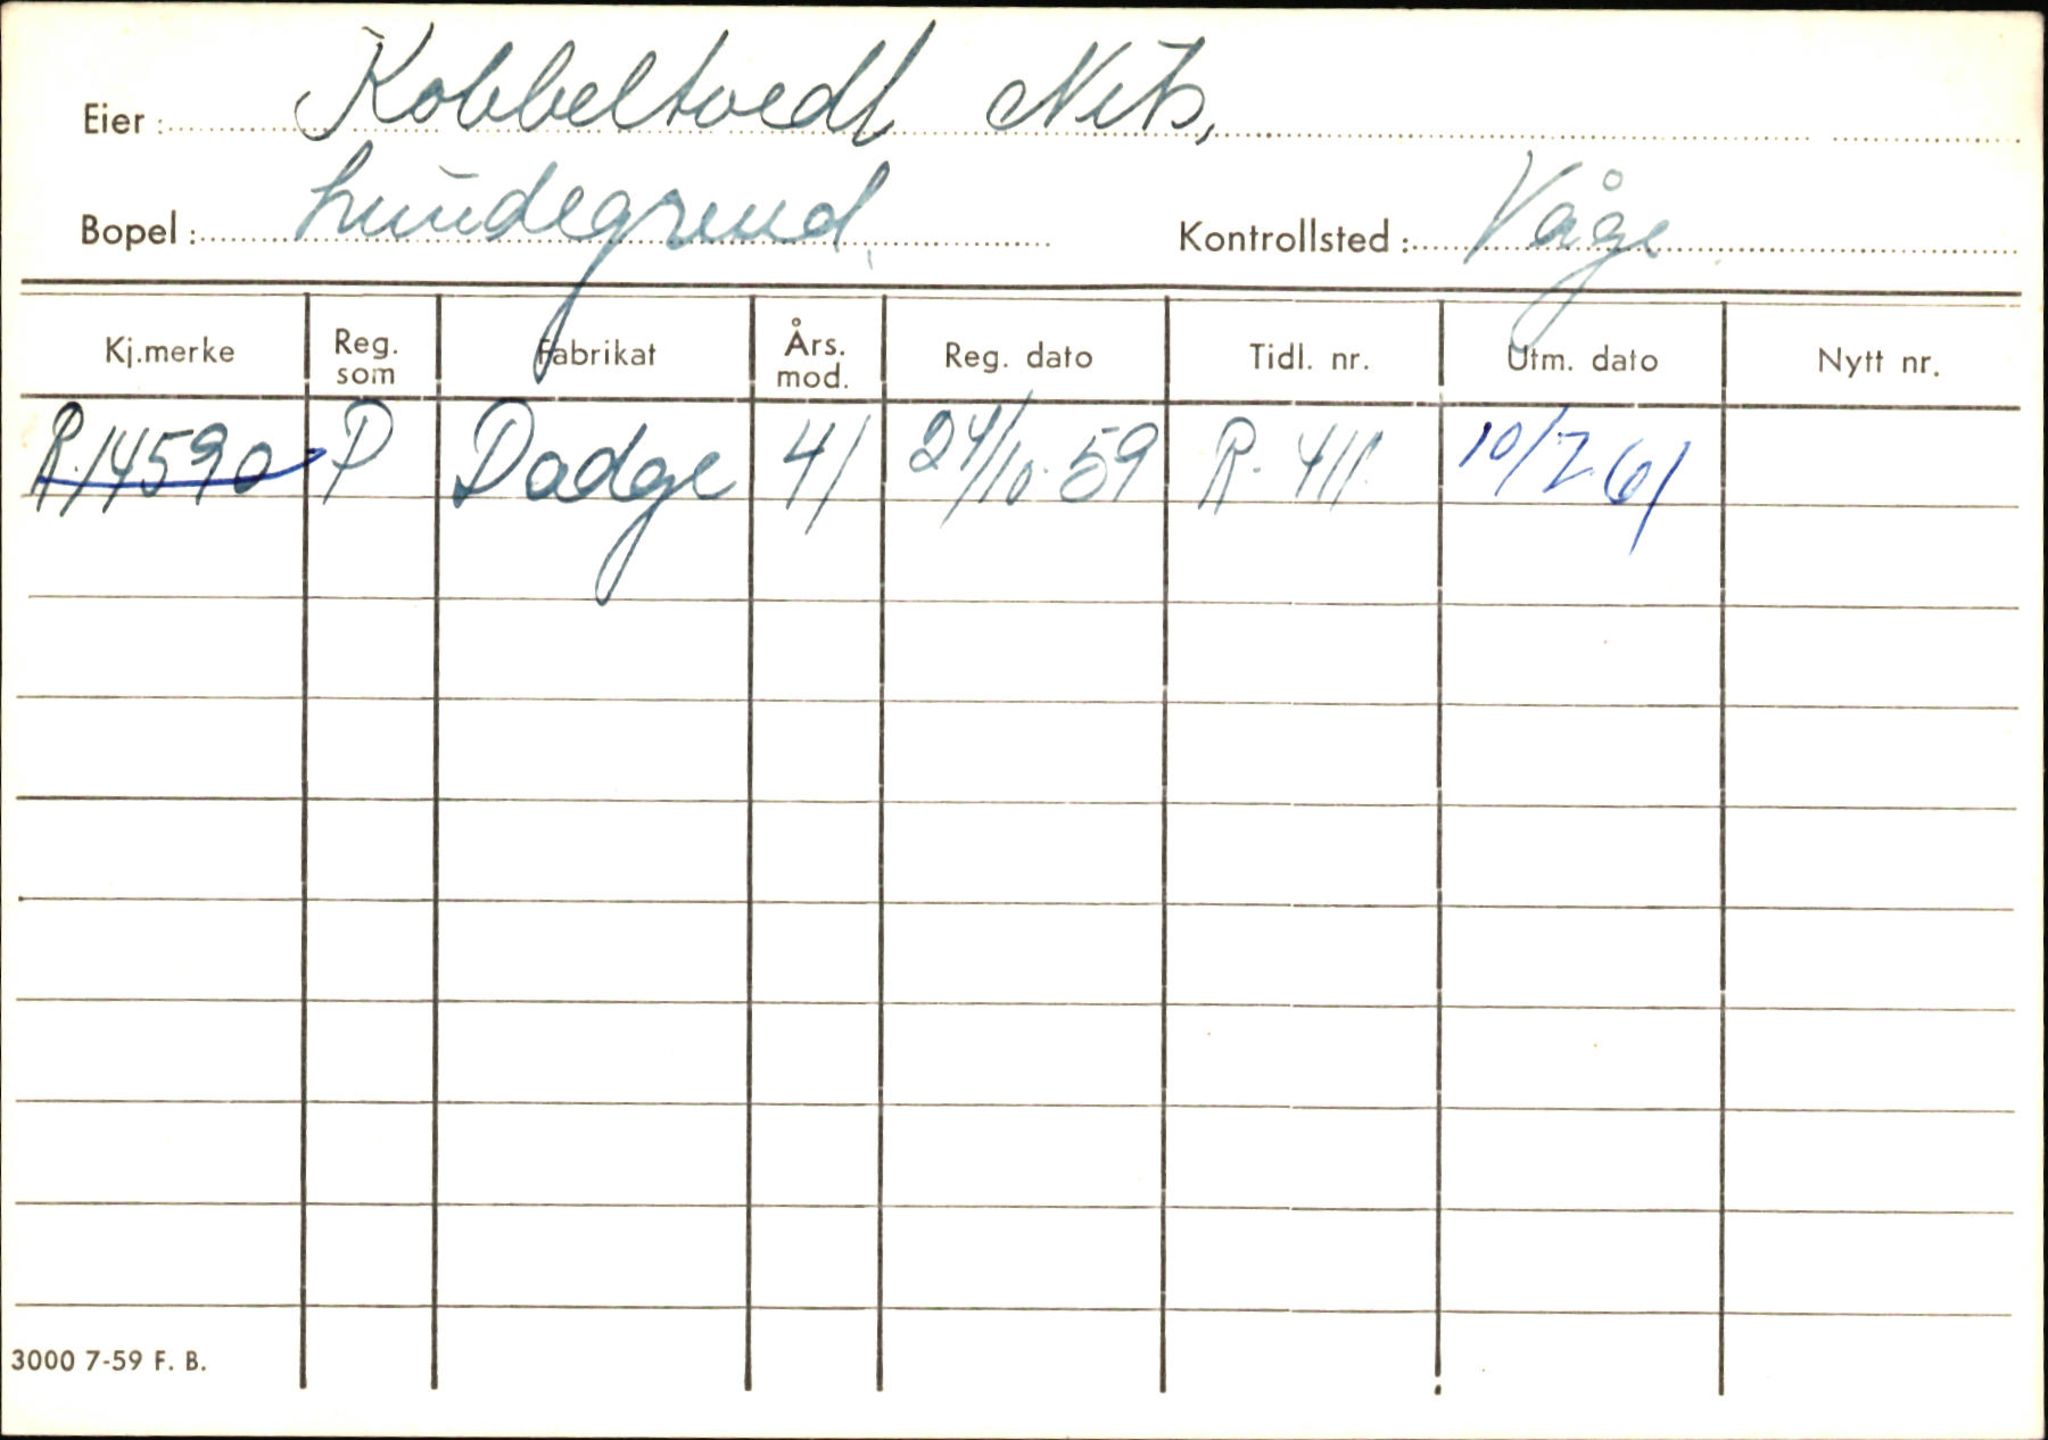 Eier: Kobbeltvedt Nils,
Bopel: Lundegrend. Kontrollsted: Våge
Kj.merke Reg. som Fabrikat Års. mod. Reg. dato Tidl. nr. Utm. dato Nytt nr.
R.14590 P Dodge 41 24/10-59 R-411. 10/7.61
3000 7-59 F. B.